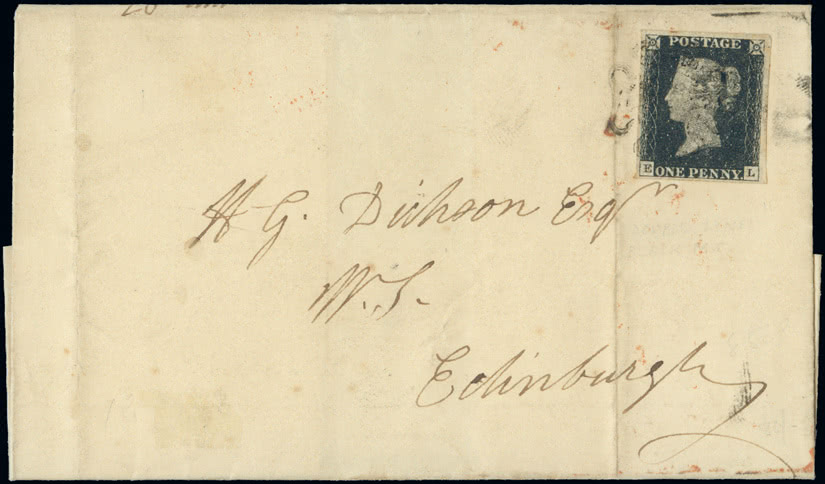 POSTAGE
E ONE PENNY L
H G. Dickson Esqr
W.S.
Edinburgh